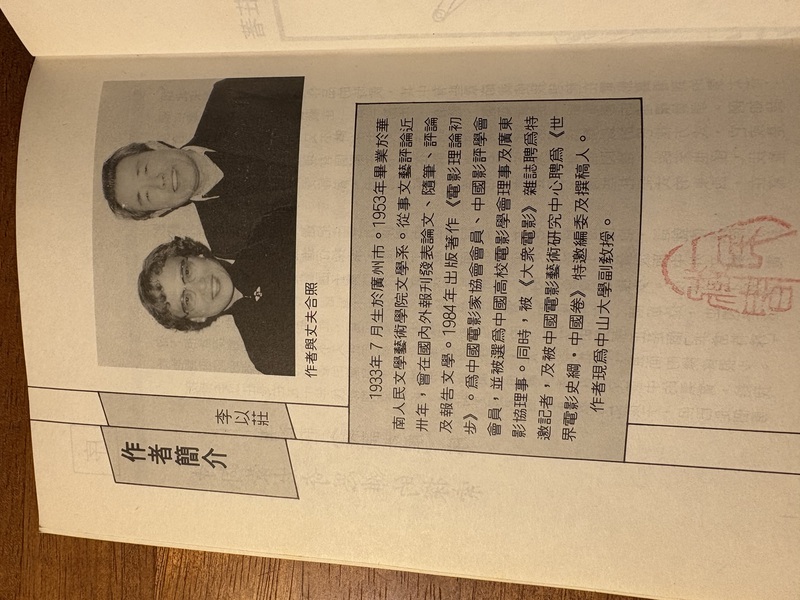 作者簡介
李以莊
作者與丈夫合照
1933年7月生於廣州市。1953年畢業於華
南人民文學藝術學院文學系。從事文藝評論近
卅年，曾在國內外報刊發表論文、隨筆、評論
及報告文學。1984年出版著作《電影理論初
步》。爲中國電影家協會會員、中國影評學會
會員，並被選爲中國高校電影學會理事及廣東
影協理事。同時，被《大衆電影》雜誌聘爲特
邀記者，及被中國電影藝術研究中心聘爲《世
界電影史綱・中國卷》特邀編委及撰稿人。
作者現爲中山大學副教授。